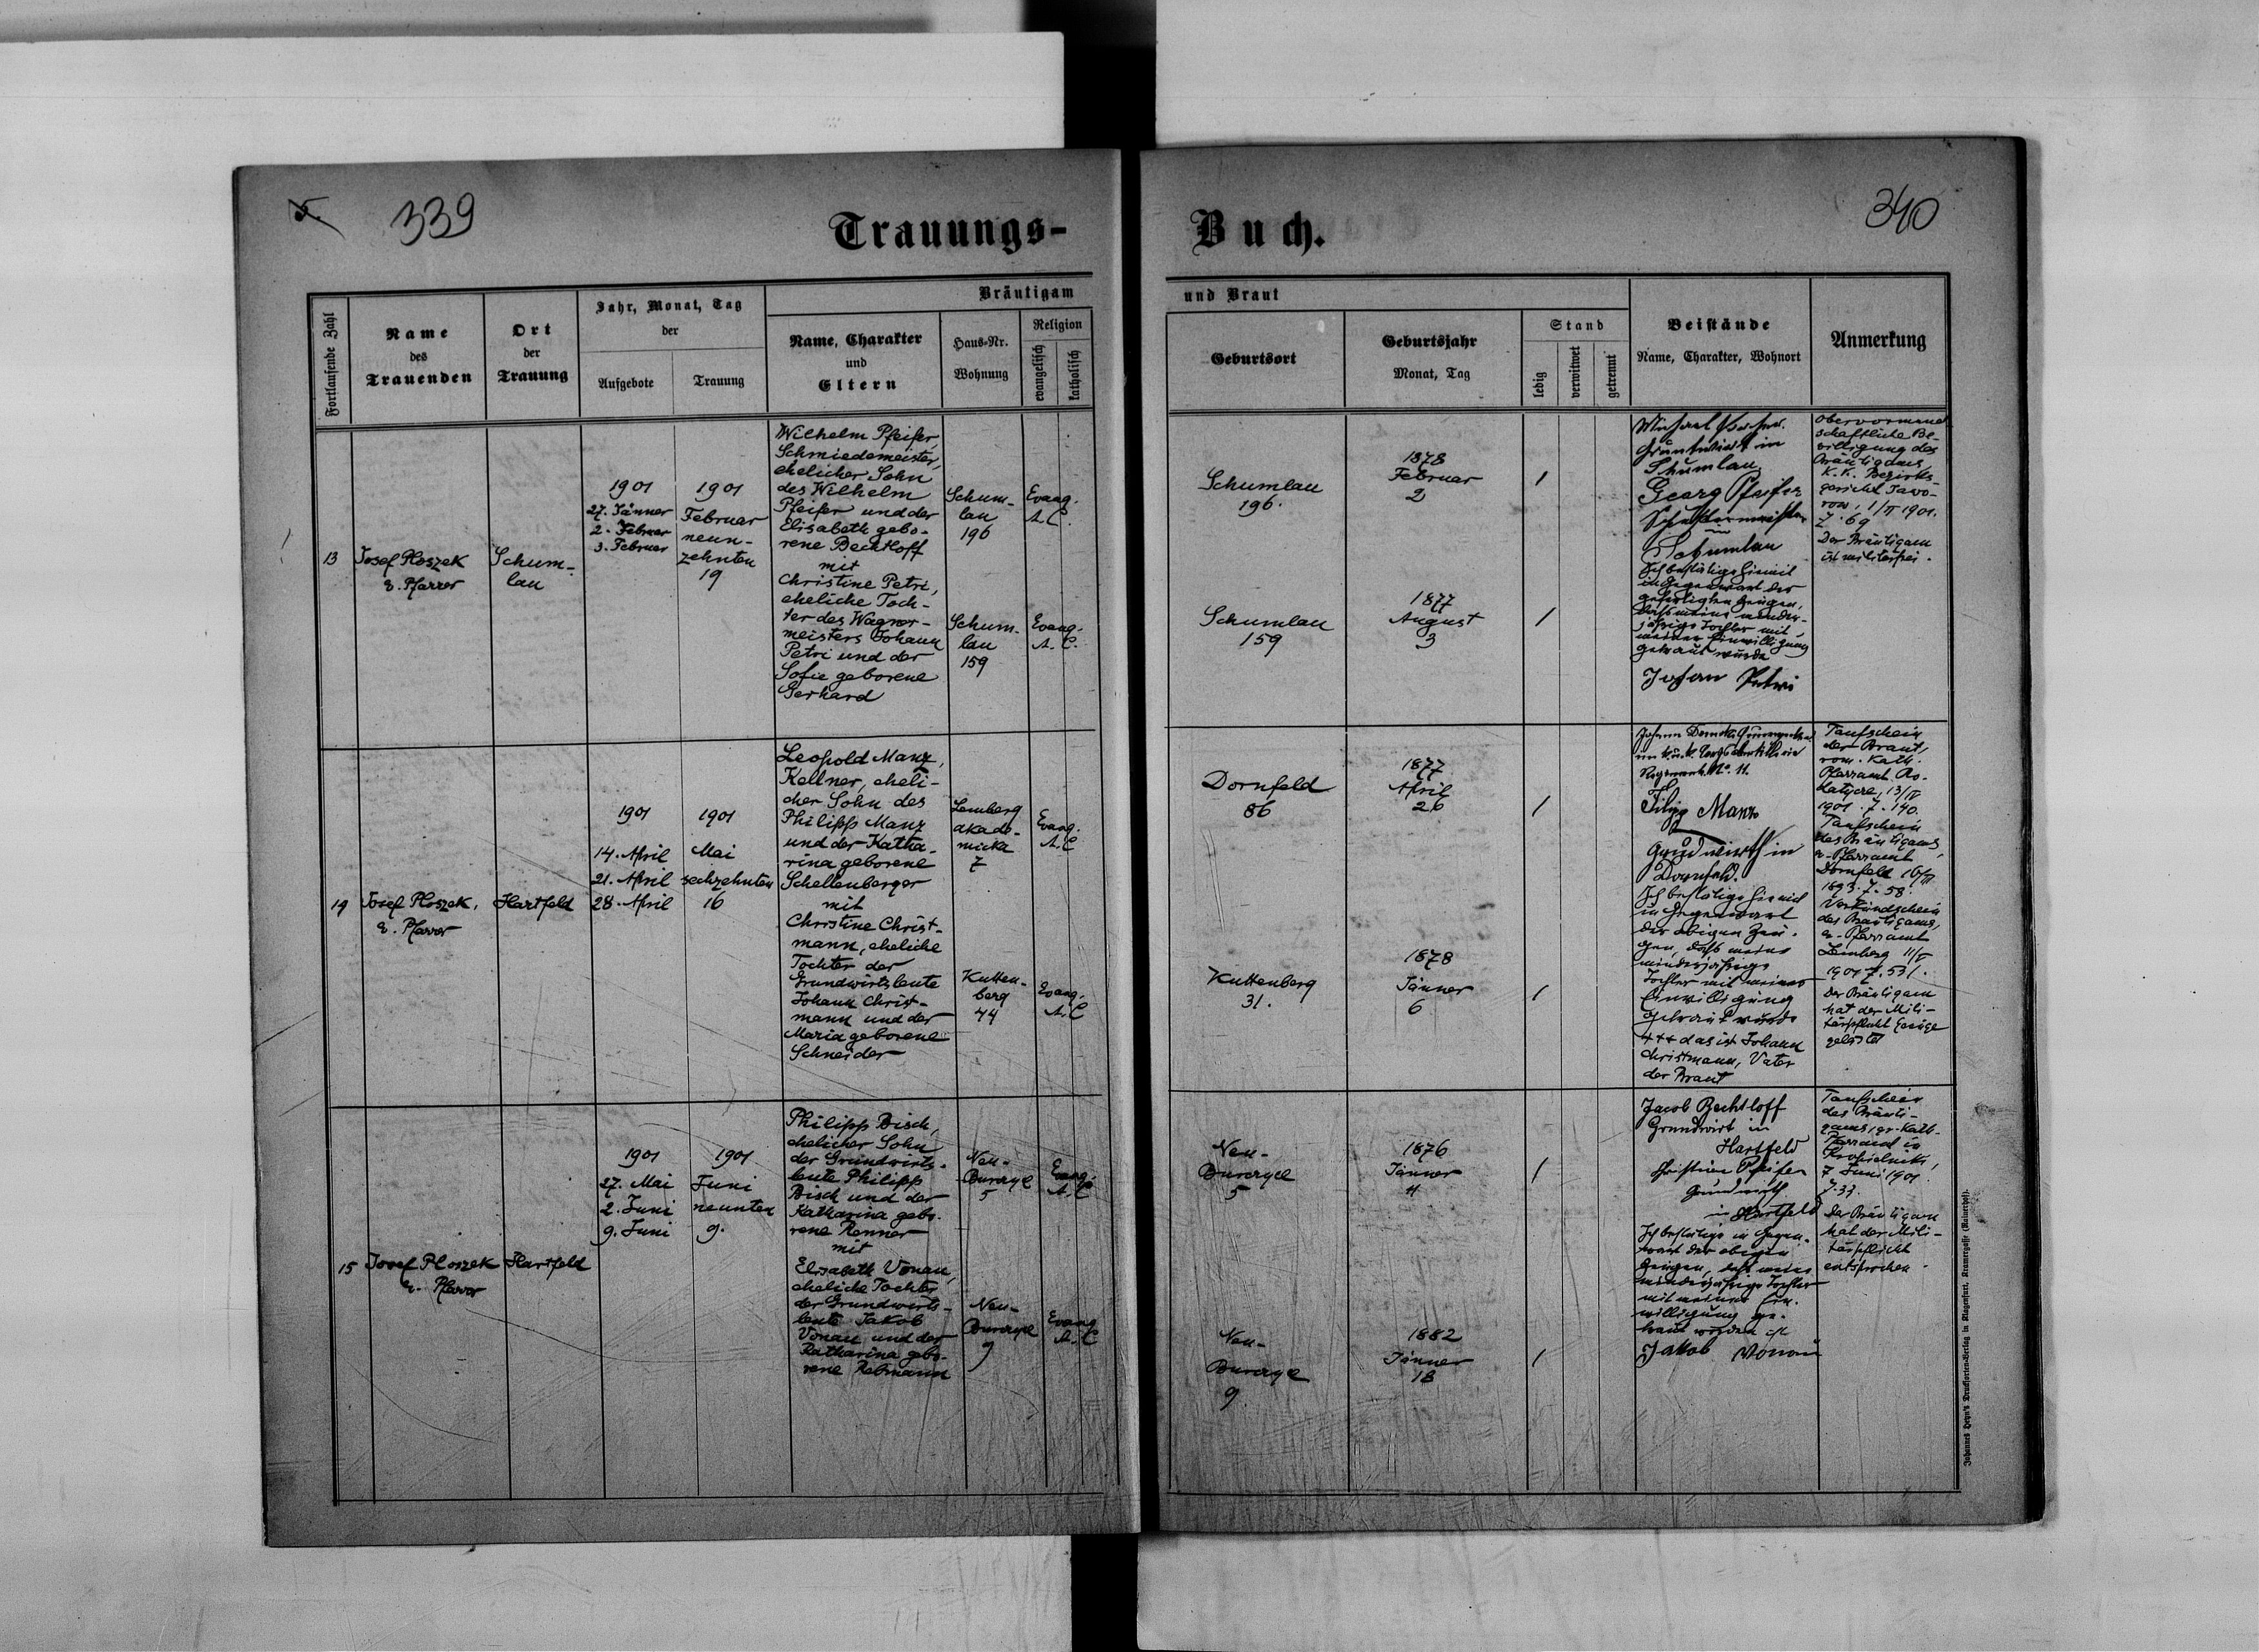 5.
339
Trauungs-
Buch.
340
Fortlaufende Zahl
Name
des
Trauenden
Ort
der
Trauung
Jahr, Monat, Tag
der
Aufgebote
Trauung
Bräutigam
Name, Charakter
und
Eltern
Haus-Nr.
Wohnung
Religion
evangelisch
katholisch
und Braut
Geburtsort
Geburtsjahr
Monat, Tag
Stand
ledig
verwitwet
getrennt
Beistände
Name, Charakter, Wohnort
Anmerkung
13
Josef Ploszek
e. Pfarrer
Schum-
lau
1901
27. Jänner
2. Februar
3. Februar
1901
Februar
neun-
zehnten
19
Wilhelm Pfeifer,
Schmiedemeister,
ehelicher Sohn
des Wilhelm
Pfeifer und der
Elisabeth gebo-
rene Bechtloff
mit
Christine Petri,
eheliche Toch-
ter des Wagner-
meisters Johann
Petri und der
Sofie geborene
Gerhard
Schum-
lau
196
Evang.
A.C.
Schum-
lau
159
Evang.
A.C.
Schumlau
196.
1878
Februar
2
/
Schumlau
159
1877
August
3
/
Grundwirt in
Schumlau
Georg Pfeifer
Schustermeister
in
Schumlau
Ich bestätige hiemit
in Gegenwart der
gefertigten Zeugen,
daß meine minder-
jährige Tochter mit
meiner Einwilligung
getraut wurde
Johan Petri
Obervormund
schaftliche Be-
willigung des
Bräutigams,
K. k. Bezirks-
gericht Jawo-
row, 1/II 1901.
Z. 69
Der Bräutigam
ist militärfrei.
14
Josef Ploszek,
e. Pfarrer
Hartfeld
1901
14. April
21. April
28. April
1901
Mai
sechzehnten
16
Leopold Manz,
Kellner, eheli-
cher Sohn des
Philipp Manz
und der Katha-
rina geborene
Schellenberger
mit
Christine Christ-
mann, eheliche
Tochter der
Grundwirtsleute
Johann Christ-
mann und der
Maria geborene
Schneider
Lemberg
akade-
micka
7
Evang.
A.C
Kutten-
berg
44
Evang.
A.C
Dornfeld
86
1877
April
26
/
Kuttenberg
31.
1878
Jänner
6
/
Johann
Regiment No. 11.
Filipp Manz
Grundwirth in
Dornfeld.
Ich bestätige hiemit
in Gegenwart
der obigen Zeu-
gen, daß meine
minderjährige
Tochter mit meiner
Einwilligung
getraut wurde
+++ das ist Johann
Christmann, Vater
der Braut
Taufschein
der Braut,
rom. kath.
Pfarramt Ro-
katyce, 13/IV
1901. Z. 140.
Taufschein
des Bräutigams,
e. Pfarramt
Dornfeld 16/III
1893. Z. 58.
Verkündschein
des Bräutigams,
e. Pfarramt
Lemberg 11/V
1901 Z. 531.
Der Bräutigam
hat der Mili-
tärpflicht Genüge
geleistet
15
Josef Ploszek
e. Pfarrer
Hartfeld
1901
27. Mai
2. Juni
9. Juni
1901
Juni
neunten
9.
Philipp Bisch,
ehelicher Sohn
der Grundwirts-
leute Philipp
Bisch und der
Katharina gebo-
rene Renner
mit
Elisabeth Vonau,
eheliche Tochter
der Grundwirts-
leute Jakob
Vonau und der
Katharina gebo-
rene Rebmann
Neu-
Burczyce
5
Evang.
A.C
Neu-
Burczyce
9
Evang
A.C
Neu-
Burczyce
5
1876
Jänner
4
/
Neu-
Burczyce
9
1882
Jänner
18
/
Jacob Bechtloff
Grundwirt in
Hartfeld
Christian Pfeifer
Grundwirth
in Hartfeld
Ich bestätige in Gegen-
wart der obigen
Zeugen, daß meine
minderjährige Tochter
mit meiner Ein-
willigung ge-
traut worden ist
Jakob Vonau
Taufschein
des Bräuti-
gams, gr. kath.
Pfarramt in
7 Juni 1901
Z. 33.
Der Bräutigam
hat der Mili-
tärpflicht
entsprochen.
Johannes Heyn's Drucksorten-Verlag in Klagenfurt, Kramergasse (Kaiserhof).